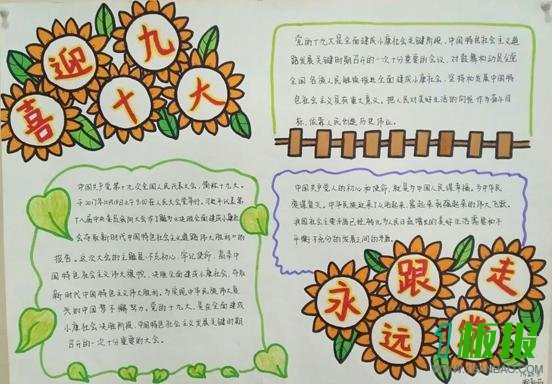 喜迎十九大
党的十九大是全面建成小康社会关键阶段、中国特色社会主义道路
发展关键时期召开的一次十分重要的会议，对鼓舞和动员全党
全国各族人民继续推进全面建成小康社会、坚持和发展中国特
色社会主义具有重大意义。把人民对美好生活的向往作为奋斗目
标，依靠人民创造历史伟业。
中国共产党第十九次全国人民代表大会，简称十九大。
于2017年10月18日上午9点在人民大会堂举行。习近平代表第
十八届中央委员会向大会作了题为《决胜全面建成小康社
会夺取新时代中国特色社会主义伟大胜利》的
报告。这次大会的主题是：不忘初心，牢记使命，高举
中国特色社会主义伟大旗帜，决胜全面建成小康社会，夺取
新时代中国特色社会主义伟大胜利，为实现中华民族伟大复
兴的中国梦不懈努力。党的十九大，是在全面建成
小康社会决胜阶段、中国特色社会主义发展关键时期
召开的一次十分重要的大会。
中国共产党人的初心和使命，就是为中国人民谋幸福，为中华民
族谋复兴。中华民族迎来了从站起来、富起来到强起来的伟大飞跃。
我国社会主要矛盾已经转化为人民日益增长的美好生活需要和不
平衡不充分的发展之间的矛盾。
永远跟党走
板报
1BANBAO.COM